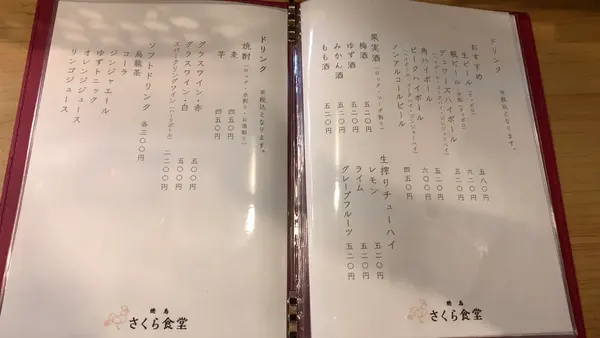 ドリンク
※税込となります。
おすすめ
生ビール
瓶ビール
デュワーズハイボール
角ハイボール
ピーチハイボール
ノンアルコールビール
五八〇円
六二〇円
五二〇円
五二〇円
六〇〇円
四五〇円
果実酒
梅酒 五二〇円
ゆず酒 五二〇円
みかん酒 五二〇円
もも酒 五二〇円
生搾りチューハイ
レモン 五二〇円
ライム 五二〇円
グレープフルーツ 五二〇円
焼鳥
さくら食堂
ドリンク
※税込となります。
焼酎(ロック・水割り・お湯割り)
麦 四五〇円
芋 四五〇円
グラスワイン・赤 五〇〇円
グラスワイン・白 五〇〇円
スパークリングワイン(ハーフボトル) 二二〇〇円
ソフトドリンク 各三〇〇円
烏龍茶
コーラ
ジンジャエール
ゆずトニック
オレンジジュース
リンゴジュース
焼鳥
さくら食堂